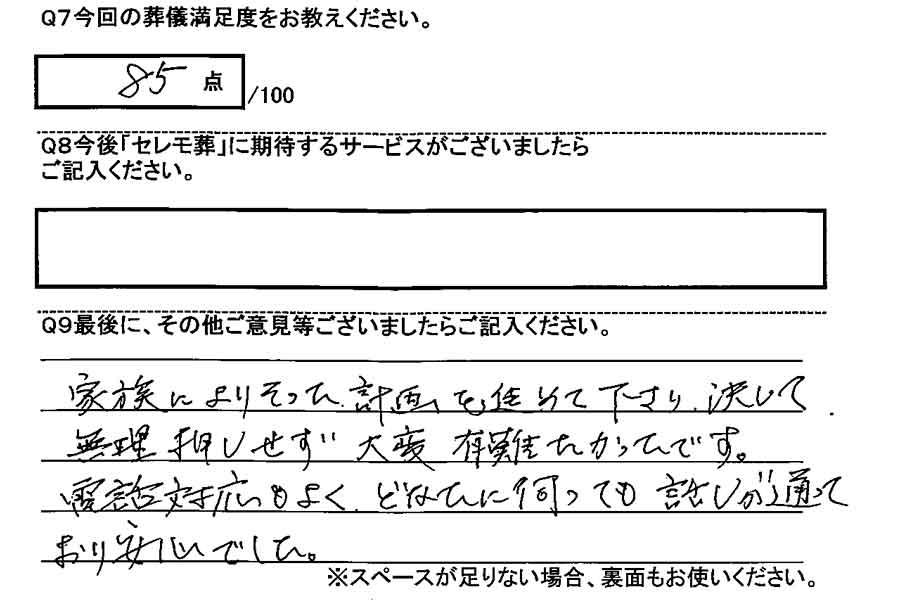 Q7今回の葬儀満足度をお教えください。
85点/100
Q8今後「セレモ葬」に期待するサービスがございましたら
ご記入ください。
Q9最後に、その他ご意見等ございましたらご記入ください。
家族によりそった計画を進めて下さり、決して
無理押しせず大変有難たかったです。
電話対応もよく、どなたに伺っても話しが通って
おり安心でした。
※スペースが足りない場合、裏面もお使いください。